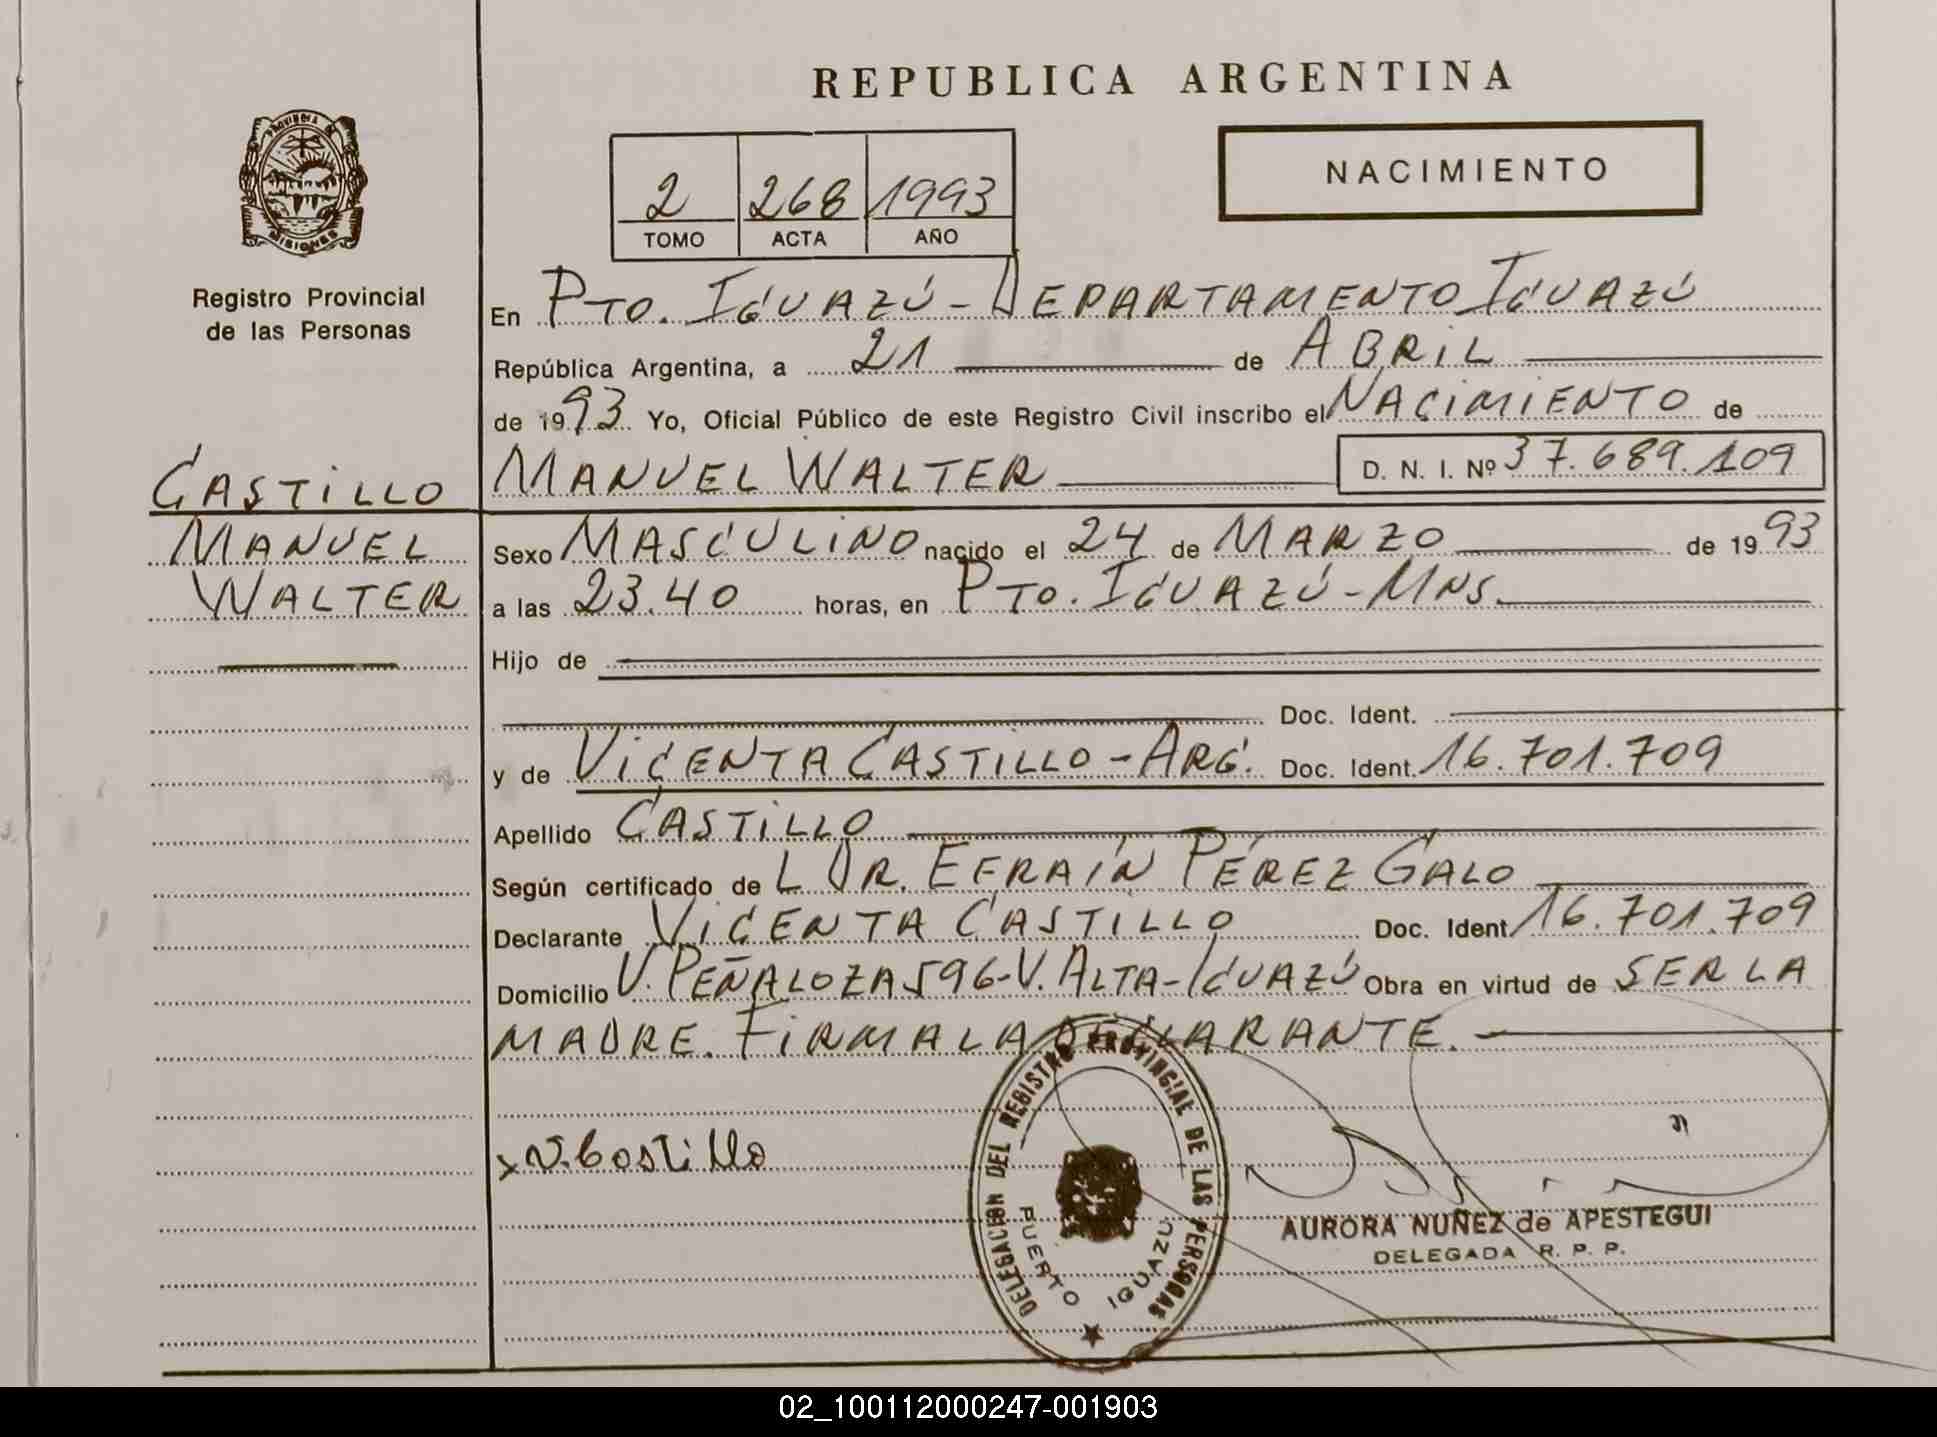 REPUBLICA ARGENTINA
PROVINCIA DE
MISIONES
Registro Provincial
de las Personas
2 268 1993
TOMO ACTA AÑO
NACIMIENTO
En PTO. IGUAZÚ - DEPARTAMENTO IGUAZÚ
República Argentina, a 21 de ABRIL
de 1993 Yo, Oficial Público de este Registro Civil inscribo el NACIMIENTO de
MANUEL WALTER D. N. I. Nº 37.689.109
CASTILLO
MANUEL
WALTER
Sexo MASCULINO nacido el 24 de MARZO de 1993
a las 23.40 horas, en PTO. IGUAZÚ - MNS.
Hijo de
Doc. Ident.
y de VICENTA CASTILLO - ARG. Doc. Ident. 16.701.709
Apellido CASTILLO
Según certificado de L DR. EFRAÍN PÉREZ GALO
Declarante VICENTA CASTILLO Doc. Ident 16.701.709
Domicilio V. PEÑALOZA 596 - V. ALTA - IGUAZÚ Obra en virtud de SER LA
MADRE. FIRMA LA DECLARANTE.
x V. Castillo
DELEGACION DEL REGISTRO PROVINCIAL DE LAS PERSONAS
PUERTO IGUAZU
AURORA NUÑEZ de APESTEGUI
DELEGADA R. P. P.
02_100112000247-001903